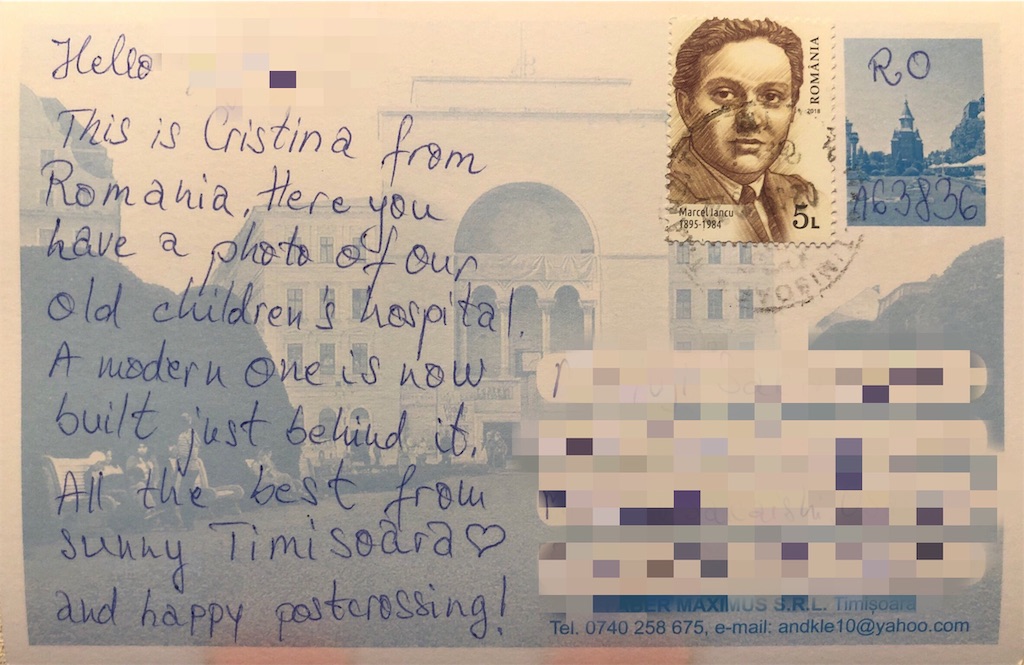 Hello
This is Cristina from
Romania. Here you
have a photo of our
old children's hospital.
A modern one is now
built just behind it.
All the best from
sunny Timisoara♡
and happy postcrossing!
ROMÂNIA
2018
Marcel Iancu
1895-1984
5L
RO
A63836
MAXIMUS S.R.L. Timişoara
Tel. 0740 258 675, e-mail: andkle10@yahoo.com